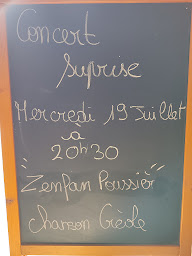 Concert
Suprise
Mercredi 19 Juillet
à
20h30
"Zenfan Poussièr"
Chanson Créole